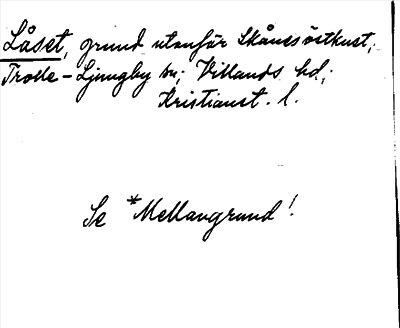 Låset, grund utanför Skånes östkust;
Trolle-Ljungby sn; Villands hd;
Kristianst. l.
Se *Mellangrund!